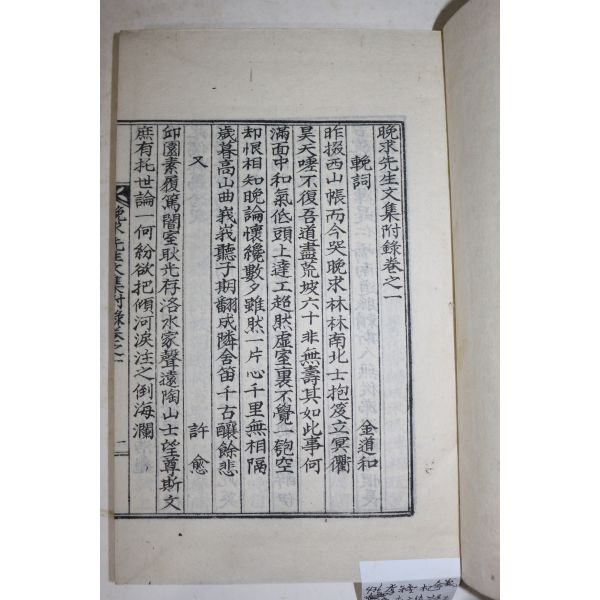 晩求先生文集附錄卷之一
輓詞 金道和
昨掇西山帳而今哭晩求林林南北士抱笈立冥衢
昊天嘑不復吾道盡荒坡六十非無壽其如此事何
滿面中和氣低頭上達工超然虛室裏不覺一匏空
却恨相知晩論懷纔數夕雖然一片心千里無相隔
歲暮高山曲峩峩聽子期翻成隣舍笛千古釀餘悲
又 許愈
邱園素履篤闇室耿光存洛水家聲遠陶山士望尊斯文
庶有托世論一何紛欲把傾河淚注之倒海瀾
晩求先生文集附錄卷之一